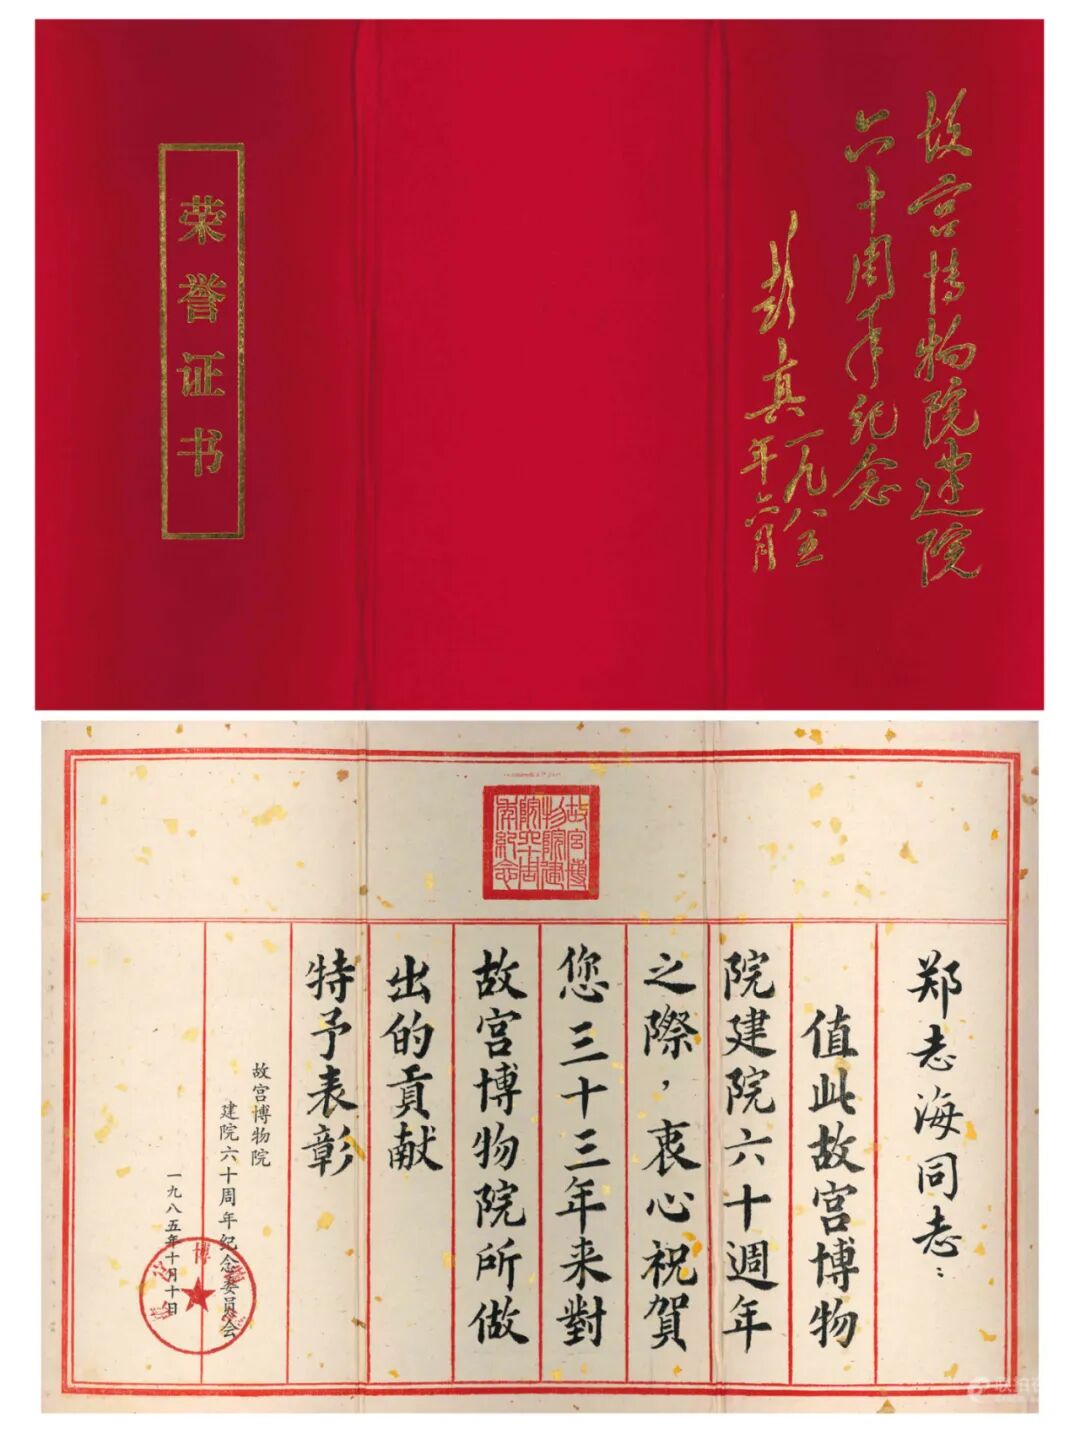 故宫博物院建院
六十周年纪念
彭真一九八五
年六月
荣誉证书
故宫博
物院建
院六十周
年纪念
郑志海同志：
值此故宫博物
院建院六十週年
之際，衷心祝賀
您三十三年来對
故宫博物院所做
出的貢献
特予表彰
故宫博物院
建院六十周年纪念委员会
一九八五年十月十日